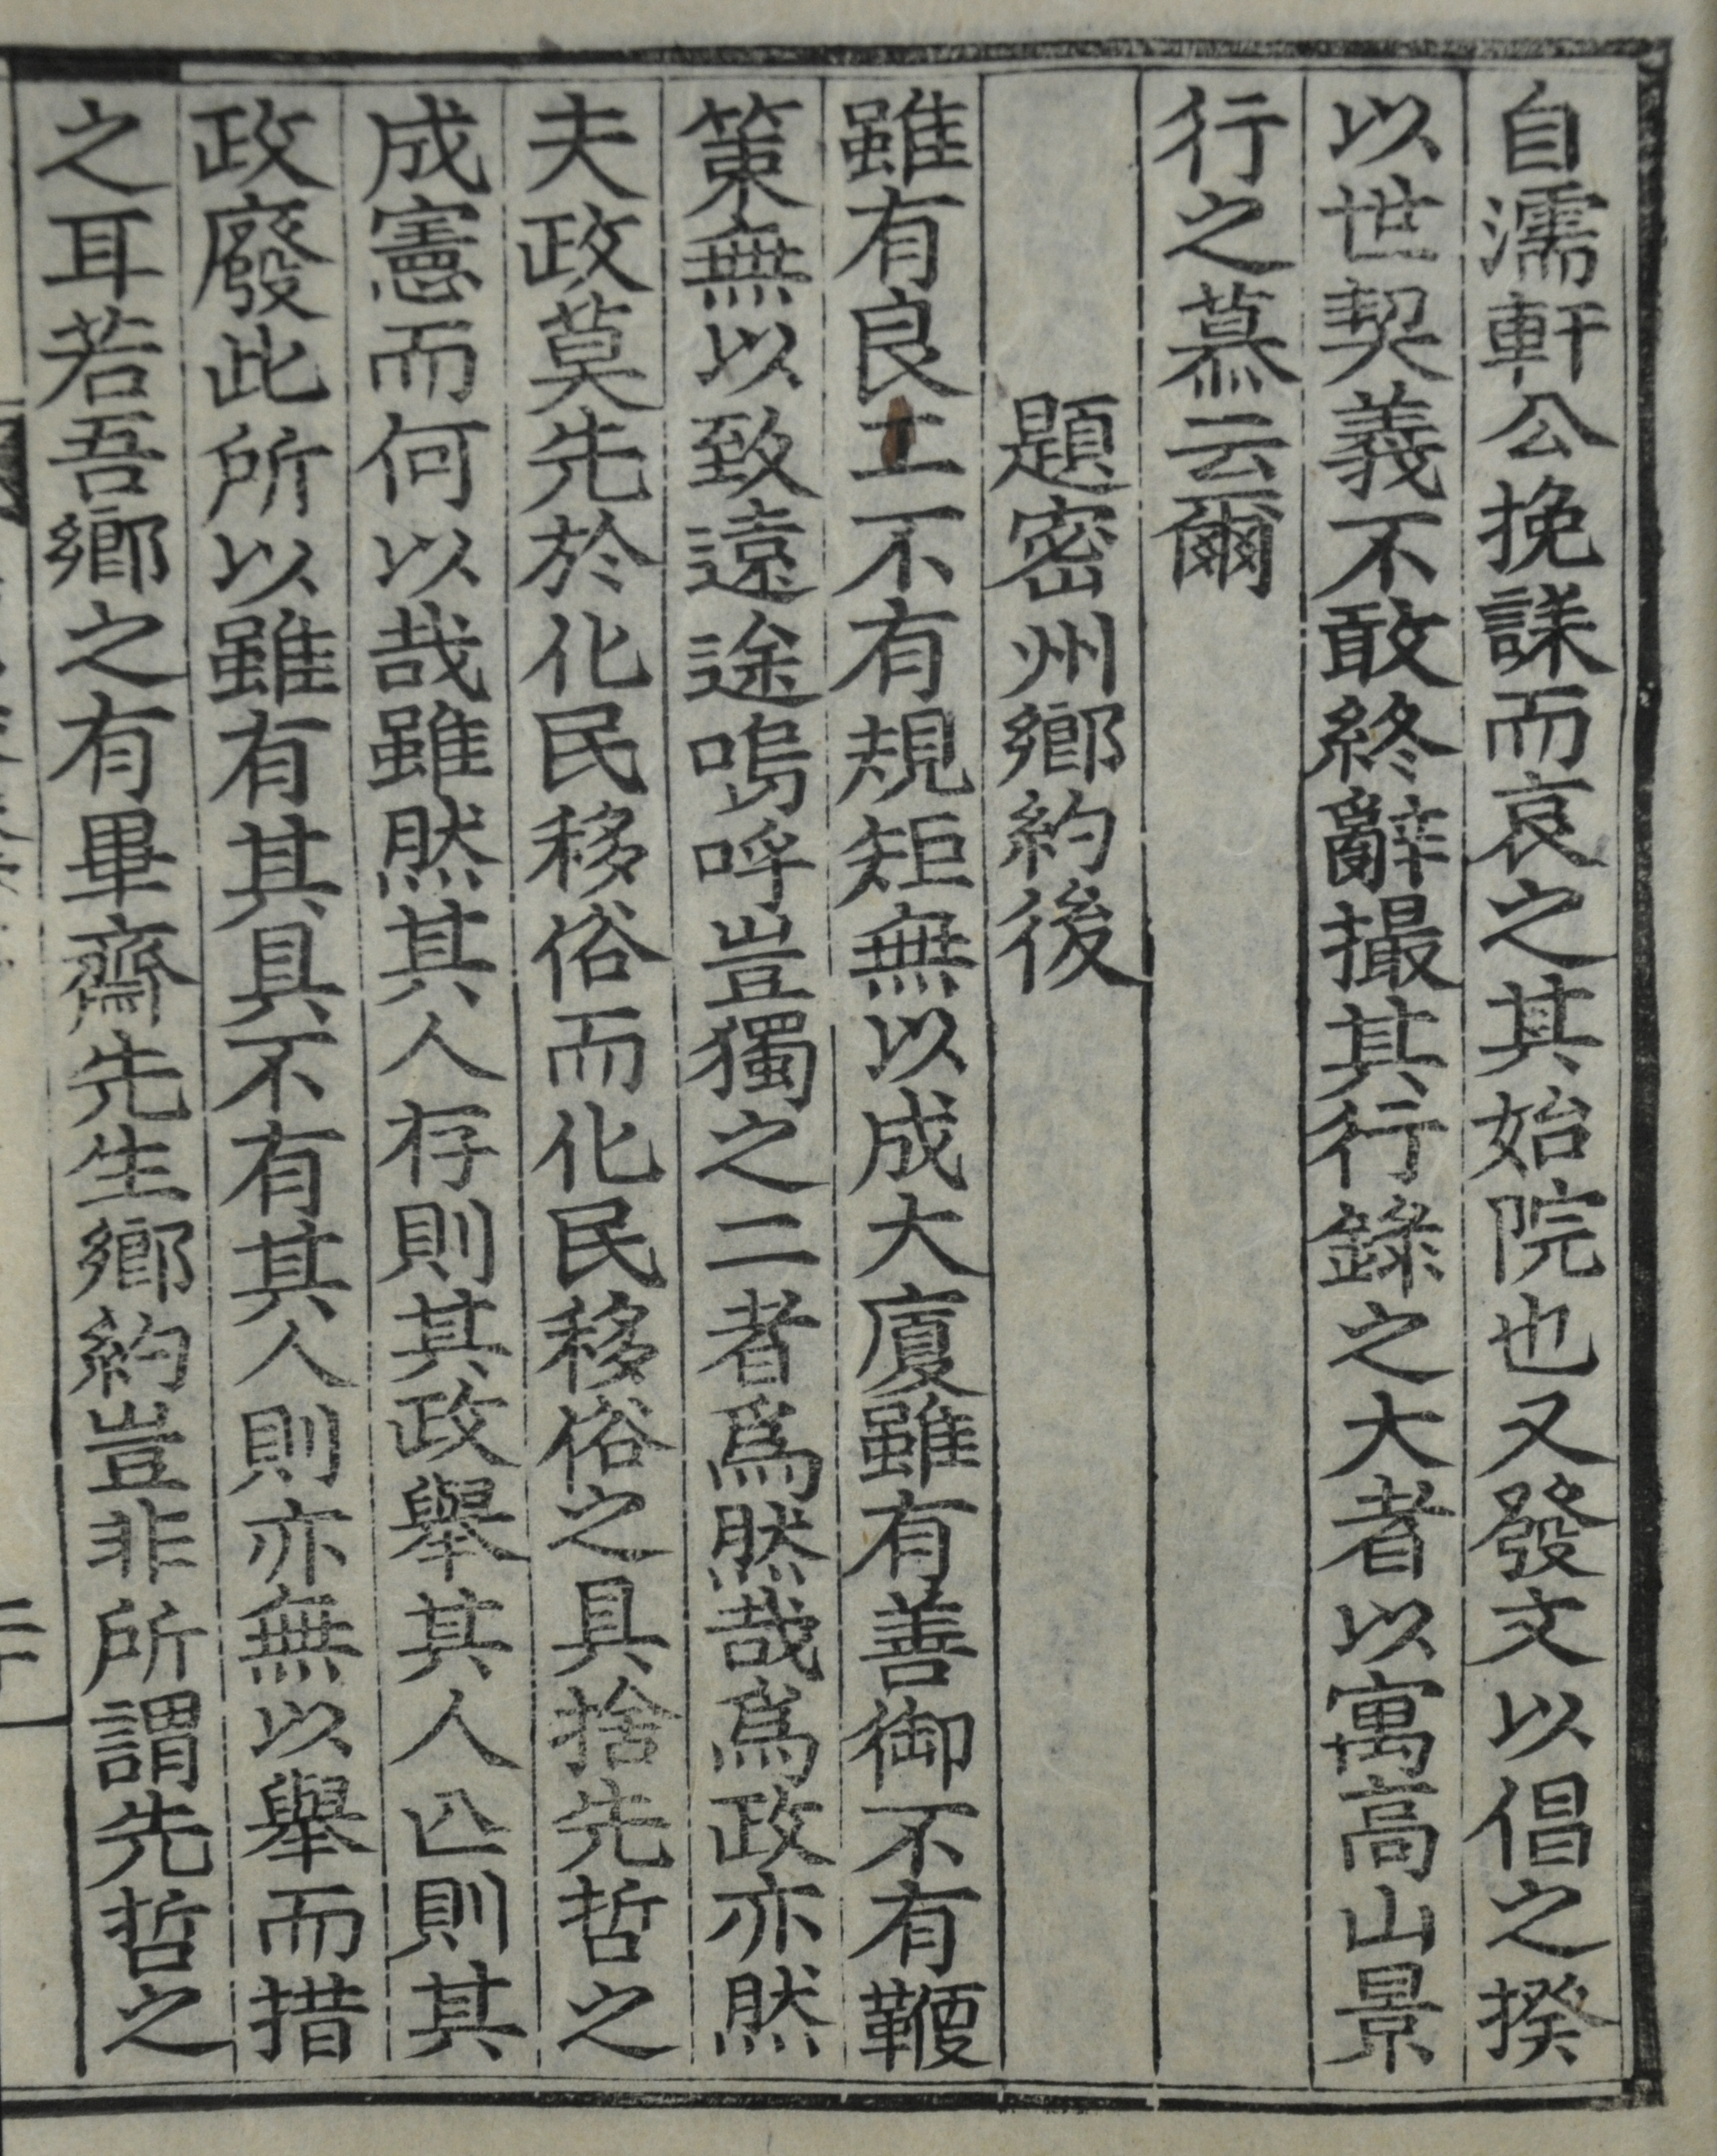 自濡軒公挽誄而哀之其始院也又發文以倡之揆
以世契義不敢終辭撮其行錄之大者以寓高山景
行之慕云爾
題密州鄕約後
雖有良工不有規矩無以成大廈雖有善御不有鞭
策無以致遠途嗚呼豈獨之二者爲然哉爲政亦然
夫政莫先於化民移俗而化民移俗之具捨先哲之
成憲而何以哉雖然其人存則其政舉其人亾則其
政廢此所以雖有其具不有其人則亦無以舉而措
之耳若吾鄕之有畢齋先生鄕約豈非所謂先哲之